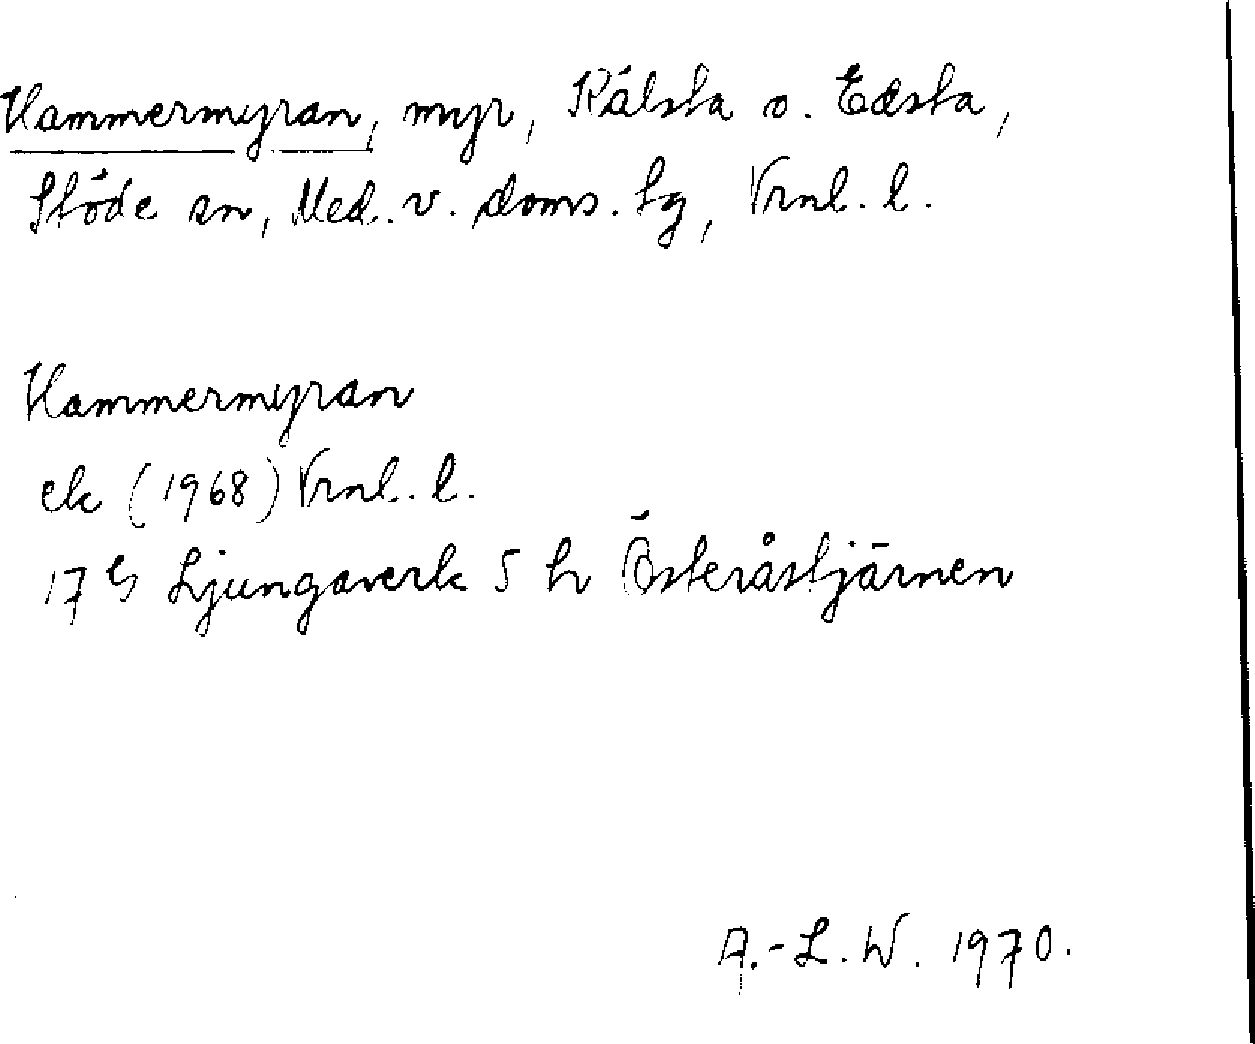 Hammermyran, myr, Kälsta o. Edsta,
Stöde sn, Med. v. doms. tg, Vrnl. l.
Hammermyran
ek (1968) Vrnl. l.
17 Ljungaverk 5 h Österåstjärnen
A.-L. W. 1970.